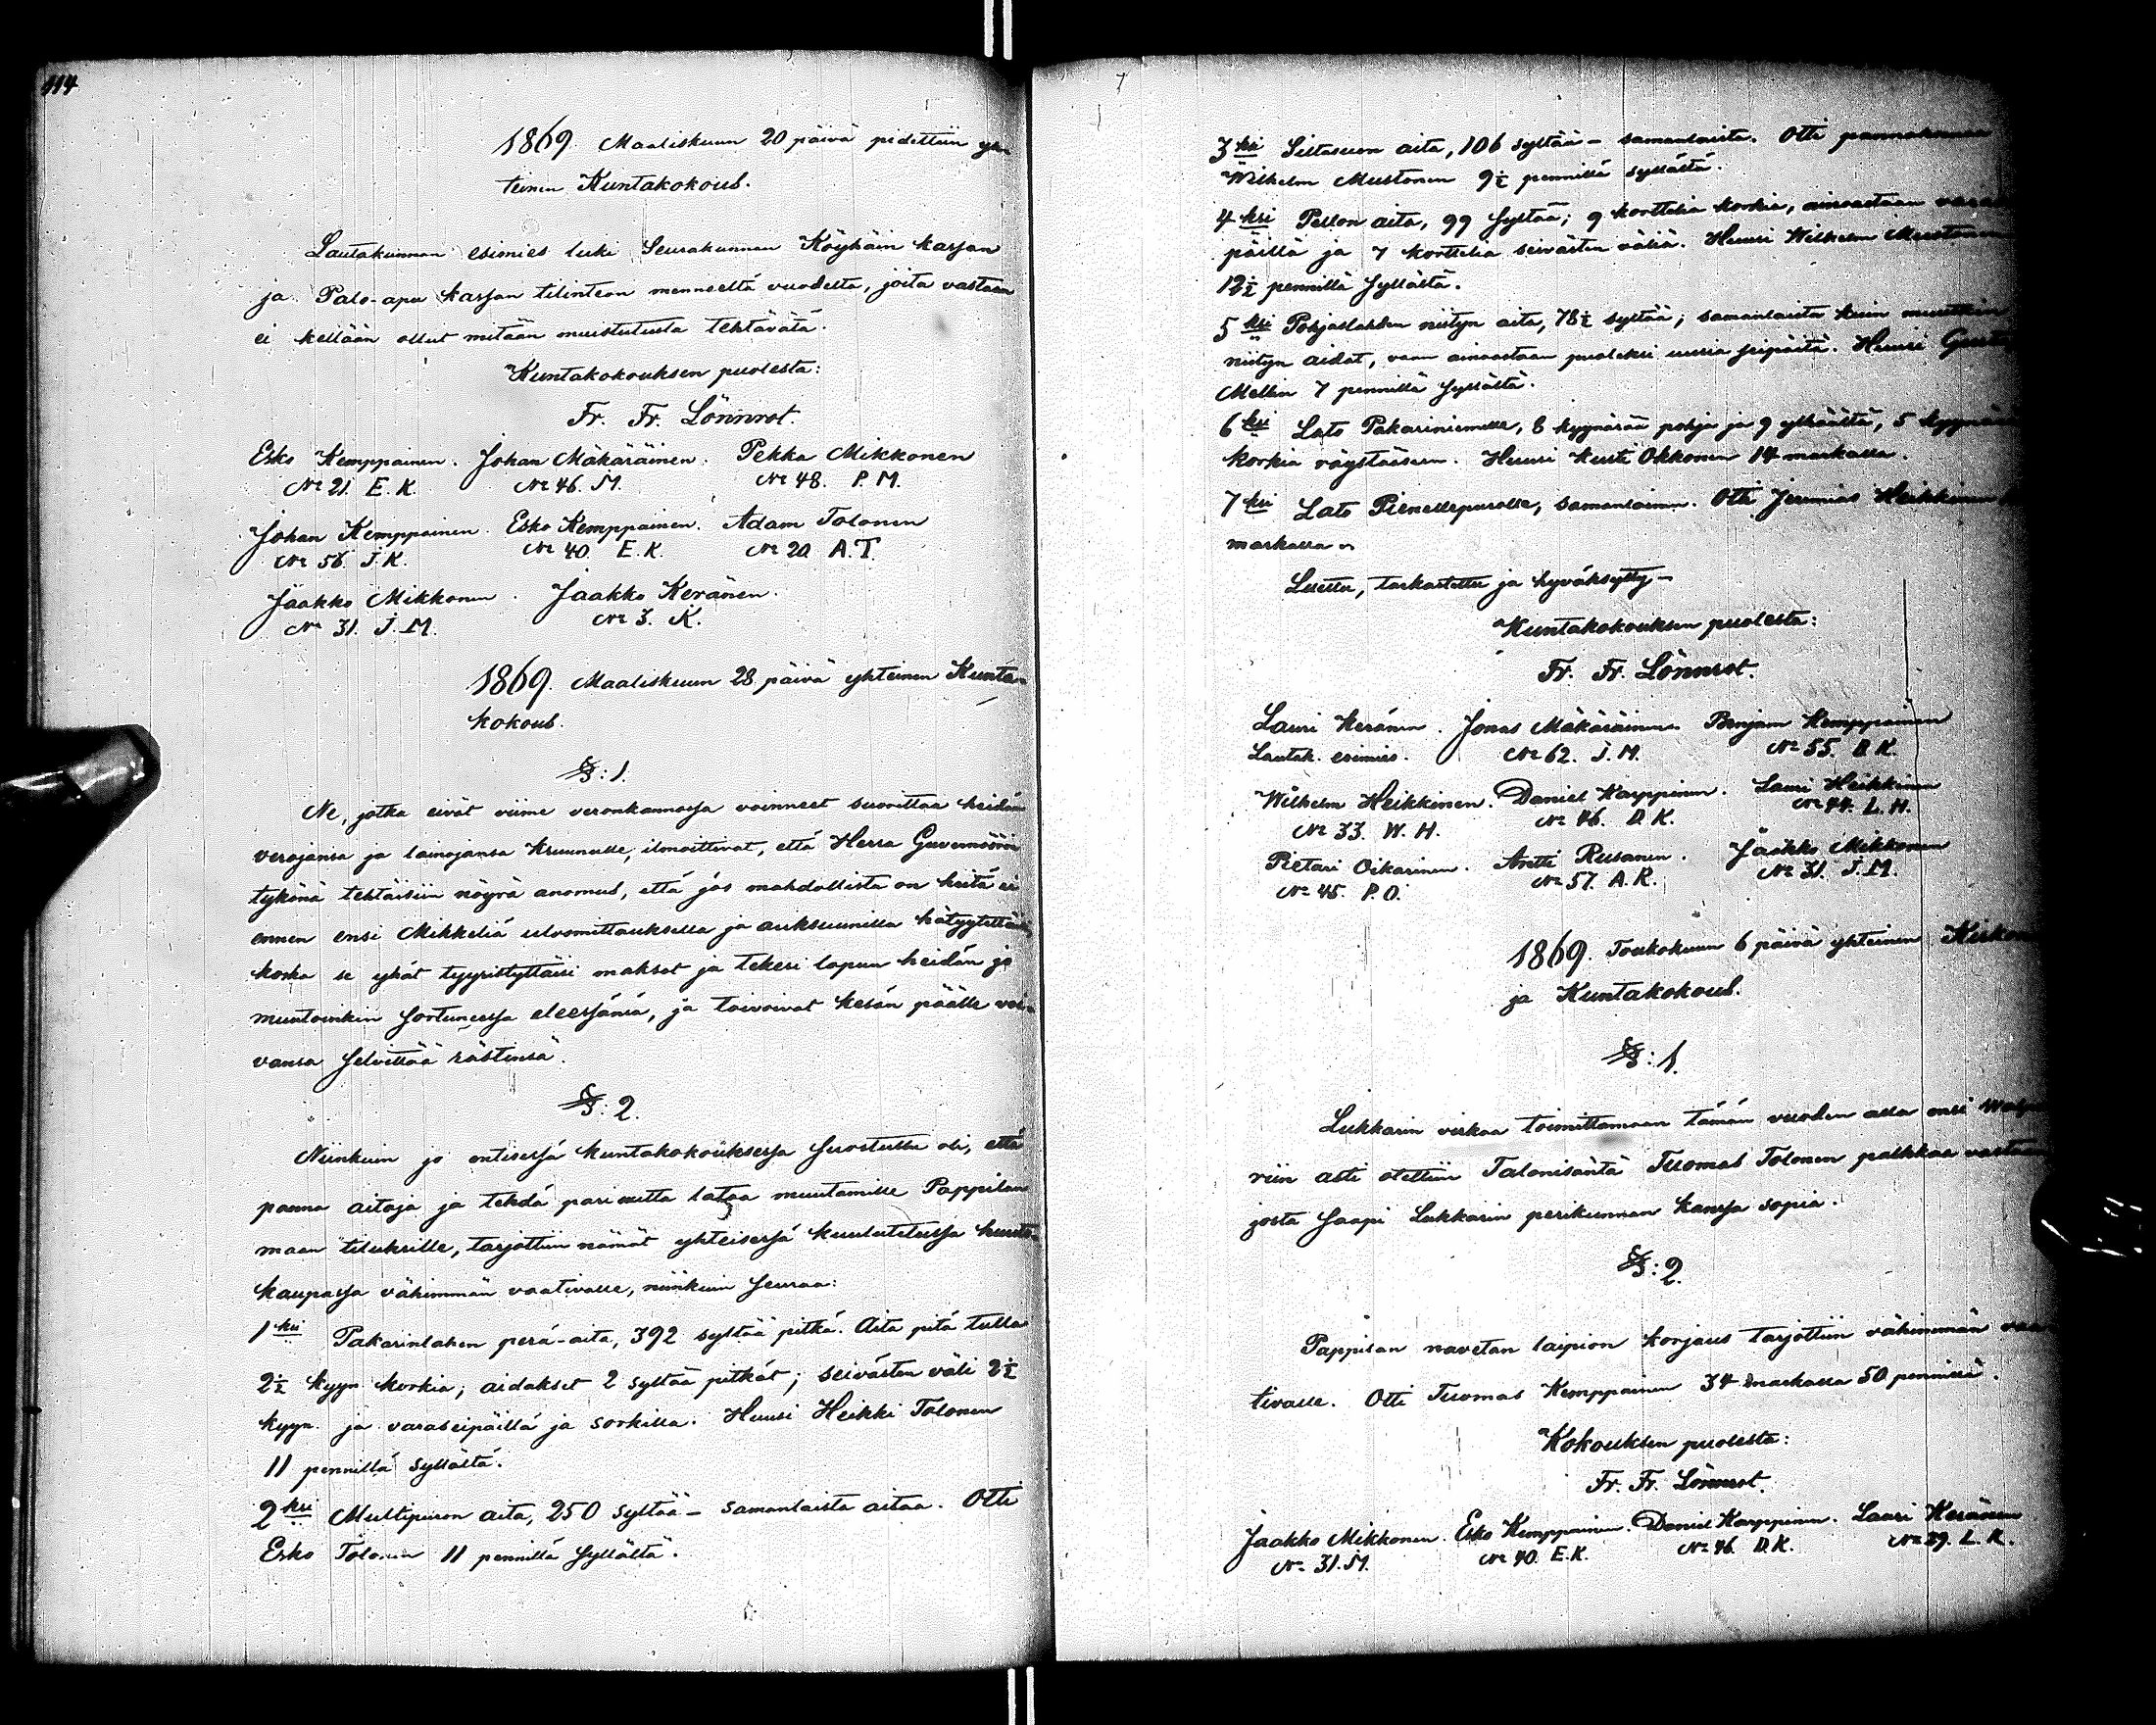 114
1869. Maaliskuun 20 päivä pidettiin yh-
teinen Kuntakokous.
Lautakunnan esimies luki Seurakunnan Köyhäin kassan
ja Palo-apu kassan tilinteon menneeltä vuodelta, joita vastaan
ei kellään ollut mitään muistutusta tehtävätä.
Kuntakokouksen puolesta:
Fr. Fr. Lönnrot.
Esko Kemppainen. Johan Mäkäräinen. Pekka Mikkonen
№ 21. E. K. № 46. M. № 48. P. M.
Johan Kemppainen. Esko Kemppainen. Adam Tolonen
№ 56. J. K. № 40 E. K. № 20 A. T.
Jaakko Mikkonen. Jaakko Keränen.
№ 31. J. M. № 3. K.
1869. Maaliskuun 28 päivä yhteinen Kunta-
kokous.
§: 1.
Ne, jotka eivät viime veronkannossa voinneet suorittaa heidän
verojansa ja lainojansa kruunulle, ilmoittivat, että Herra Guvernöörin
tykönä tehtäisiin nöyrä anomus, että jos mahdollista on heitä ei
ennen ensi Mikkeliä ulosmittauksella ja auksuunilla hätyytettäisi
koska se yhät tyyristyttäisi maksot ja tekesi lopun heidän jo
muutoinkin sortuneessa eleessänsä, ja toivoivat kesän päälle voi-
vansa selvittää rästinsä.
§: 2.
Niinkuin jo entisessä kuntakokouksessa suostuttu oli, että
panna aitoja ja tehdä pari uutta latoa muutamille Pappilan
maan tiluksille, tarjottiin nämät yhteisessä kuulutetussa huuto-
kaupassa vähimmän vaativalle, niinkuin seuraa:
1ksi Pakarinlahen perä-aita, 392 syltää pitkä. Aita pitä tulla
2½ kyyn. korkia; aidakset 2 syltää pitkät; seivästen väli 2½
kyyn. ja varaseipäillä ja sorkilla. Huusi Heikki Tolonen
11 pennillä syllältä.
2ksi Multipuron aita, 250 syltää - samanlaista aitaa. Otti
Esko Tolonen 11 pennillä syllältä.
3ksi Siltasuon aita, 106 syltää - samanlaista. Otti
Wilhelm Mustonen 9½ pennillä syllältä.
4ksi Pellon aita, 99 syltää; 9 korttelia korkia, ainoastaan
päillä ja 7 korttelia seivästen väliä. Huusi Wilhelm Mustonen
12½ pennillä syllältä.
5ksi Pohjaslahden niityn aita, 78½ syltää; samanlaista kuin muutkin
niityn aidat, vaan ainoastaan puoleksi uusia seipäitä. Huusi
Mellin 7 pennillä syllältä.
6ksi Lato Pakariniemelle, 8 kyynärää pohja ja 9 ylhäältä, 5
korkia räystäseen. Huusi Kusti Okkonen 14 markalla.
7ksi Lato Pienellepurolle, samanlainen. Otti Jeremias Heikkinen
markalla
Luettu, tarkastettu ja hyväksytty -
Kuntakokouksen puolesta:
Fr. Fr. Lönnrot.
Lauri Keränen. Jonas Mäkäräinen. Benjam Kemppainen
Lautak. esimies. № 62. J. M. № 55. B. K.
Wilhelm Heikkinen. Daniel Karppinen. Lauri Heikkinen
№ 33. W. H. № 46. D. K. № 44. L. H.
Pietari Oikarinen. Antti Rusanen. Jaakko Mikkonen
№ 45. P. O. № 57. A. R. № 31. J. M.
1869. Toukokuun 6 päivä yhteinen
ja Kuntakokous.
§: 1.
Lukkarin virkaa toimittamaan tämän vuoden alla ensi
riin asti otettiin Talonisäntä Tuomas Tolonen palkkaa vastaan
josta saapi Lukkarin perikunnan kanssa sopia.
§: 2.
Pappilan navetan laipion korjaus tarjottiin vähimmän
tivalle. Otti Tuomas Kemppainen 34 markalla 50 pennillä.
Kokouksen puolesta:
Fr. Fr. Lönnrot.
Jaakko Mikkonen. Esko Kemppainen. Daniel Karppinen. Lauri Keränen
№ 31. M. № 40. E. K. № 46. D. K. № 39. L. K.